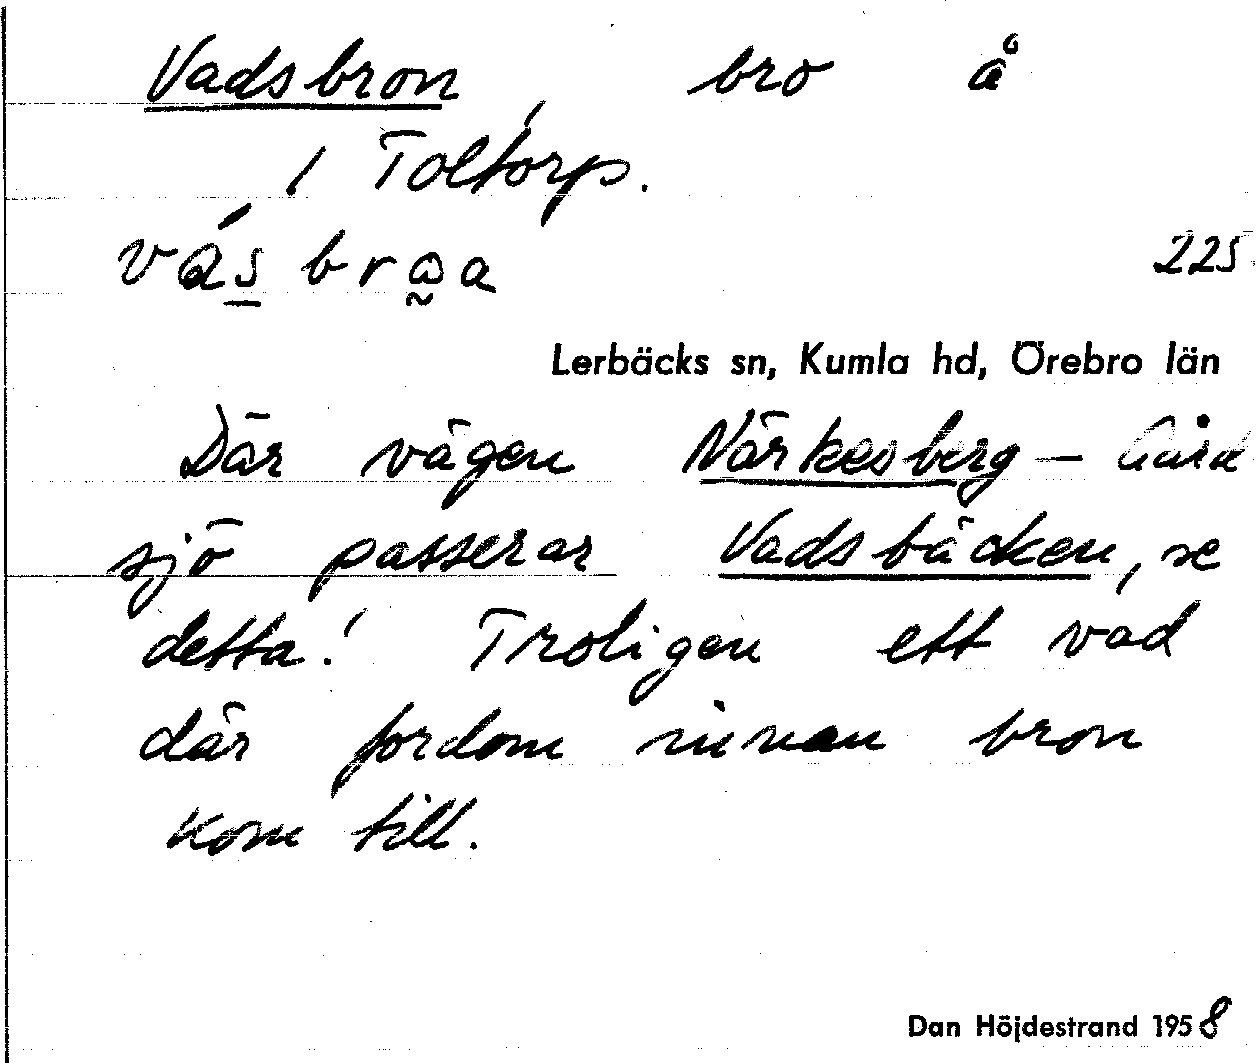 Vadsbron, bro å
/ Toltorp.
225
Lerbäcks sn, Kumla hd, Örebro län
Där vägen Närkesberg –
sjö passerar Vadsbäcken, se
detta! Troligen ett vad
där fordom innan bron
kom till.
Dan Höjdestrand 1958